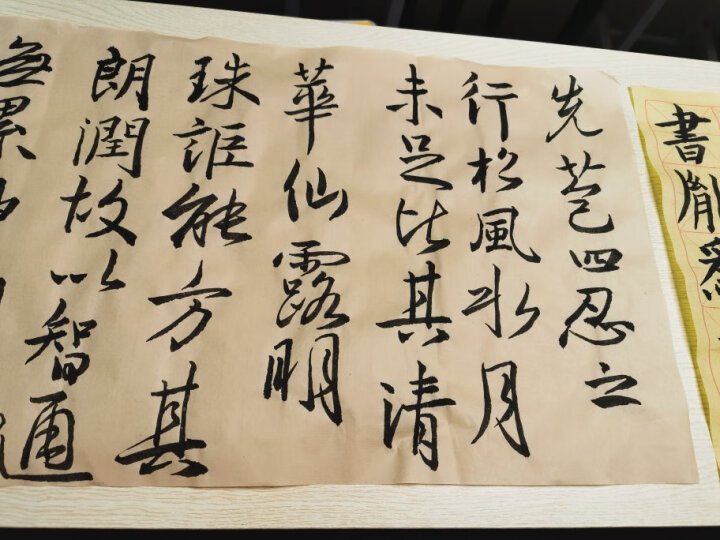 書胤
先苞四忍之
行松風水月
未足比其清
華仙露明
珠詎能方其
朗潤故以智通
無累